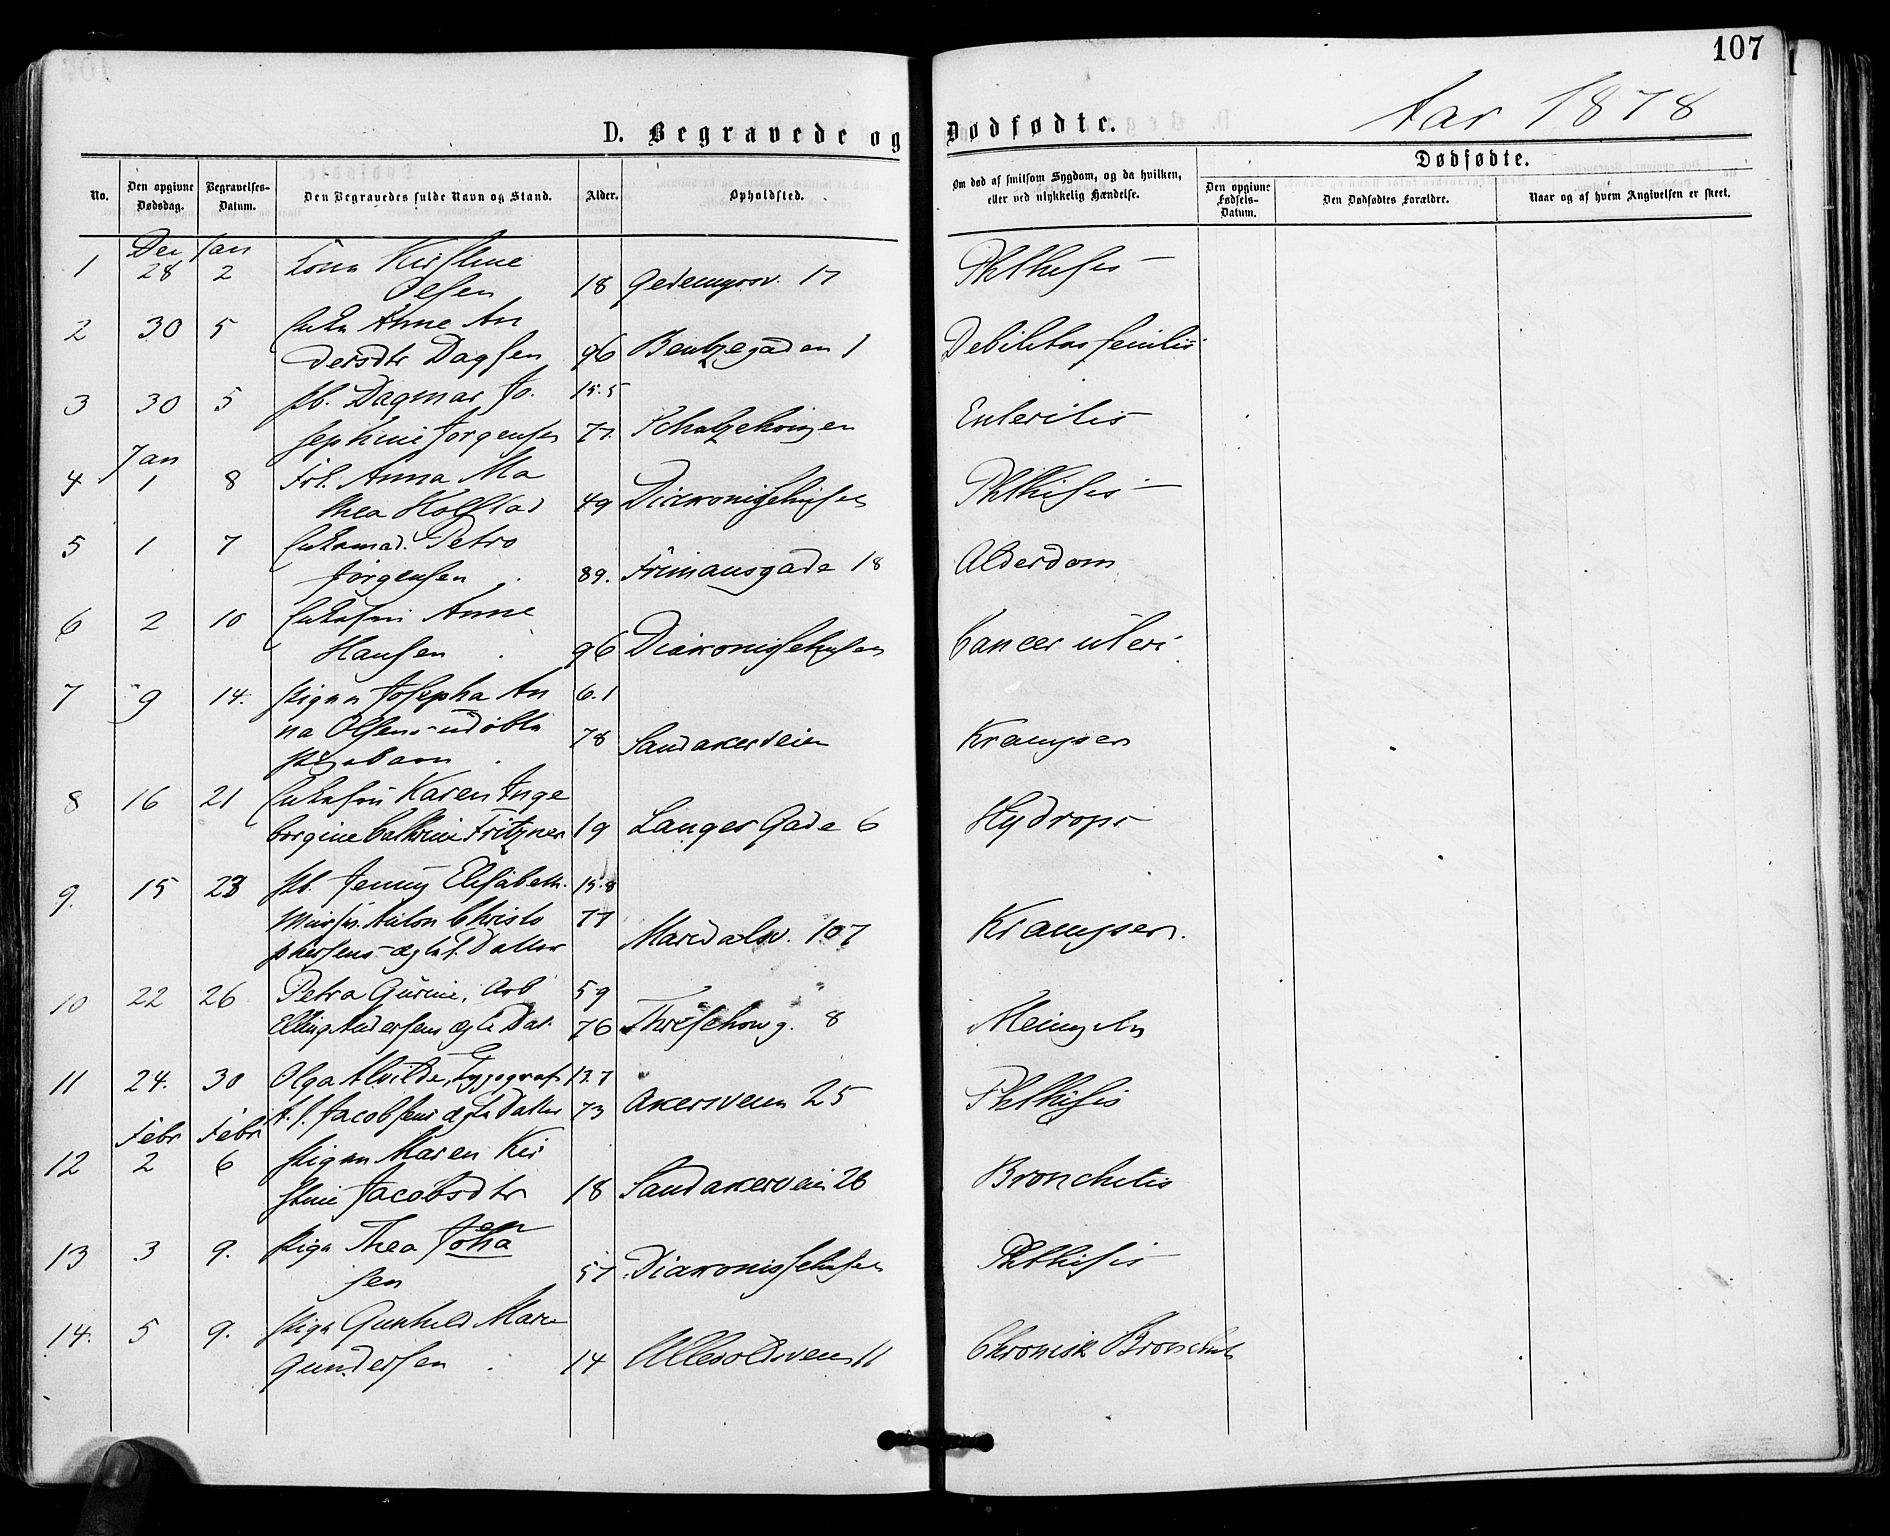 107
Aar 1878
D. Begravede og Dødfødte.
No.
Den opgivne Dødsdag.
Begravelses-Datum.
Den Begravedes fulde Navn og Stand.
Alder.
Opholdsted.
Om død af smitsom Sygdom, og da hvilken,
eller ved ulykkelig Hændelse.
Dødfødte.
Den opgivne Fødsels-Datum.
Den Dødfødtes Forældre.
Naar og af hvem Angivelsen er skeet.
Jan
1 28 2 Kirstine
Olsen 18 17 Phthisis
2 30 5 Enke Anne An
dersdtr Dagsen 96 Bentzegaden 1 Debilitas senilis
3 30 5 Pb. Dagmar Jo. 15.5
sephine Jørgensen 77. Enteritis
Jan
4 1 8 Frk. Anna Ma
thea Holstad 49 Diakonissehuset Phthisis
5 1 7 Enkemad. Petro
Jørgensen 89. Frimansgade 18 Alderdom
6 2 10 Enkefru Anne
Hansen 96 Diakonissehuset Cancer uteri
7 9 14. Pigen Josepha An 6.1
na Olsens udøbte 78 Sandakerveien Kramper
Pigebarn
8 16 21 Enkefru Karen Inge
borgine Cathrine Fritzner 19 Langes Gade 6 Hydrops
9. 15 23 Pb. Jenny Elisabeth. 15.8
Anton Christo 77 Maridalsv. 107 Kramper.
phersens ægte Datter
10 22 26 Petra Gurine, Arb 59
Elling Andersens ægte Dat. 76 Thr. Schowg. 8
11 24. 30 Olga Alvilde, Typograf 17.7
A. J. Jacobsens ægte Datter 73 Akersveien 25 Phthisis
Febr Febr
12 2 6 Pigen Maren Kir
stine Jacobsdtr 18 Sandakerveien 26 Bronchitis
13 3 9. Pige Thea Johan
sen 57 Diakonissehuset Phthisis
14. 5 9. Pige Gunhild Marie
Gundersen 14 Ullevoldsveien 11 Chronisk Bronchit